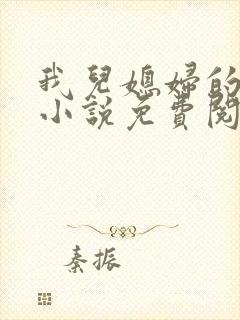 我兒媳婦的
小說免費閱
秦振